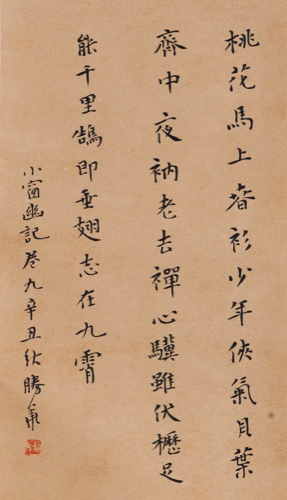 桃花馬上春衫少年俠氣貝葉
齋中夜衲老去禪心驥雖伏櫪足
能千里鵠即垂翅志在九霄
小窗幽記卷九辛丑秋勝